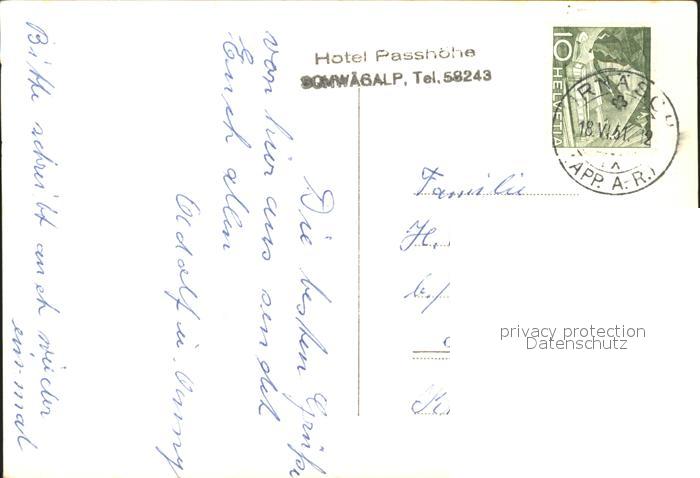 Hotel Passhöhe
SCHWÄGALP, Tel. 58243
10 HELVETIA
URNÄSCH
18.VI.51
(APP. A.-R.)
Die besten Grüße
von hier aus sendet
Euch allen
Adolf u. Anny
Bitte schreibt auch wieder
einmal
Familie
H.
privacy protection
Datenschutz